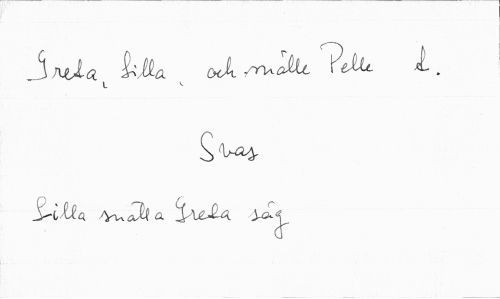 Greta, Lilla, och snälle Pelle L.
Svas
Lilla snälla Greta säg